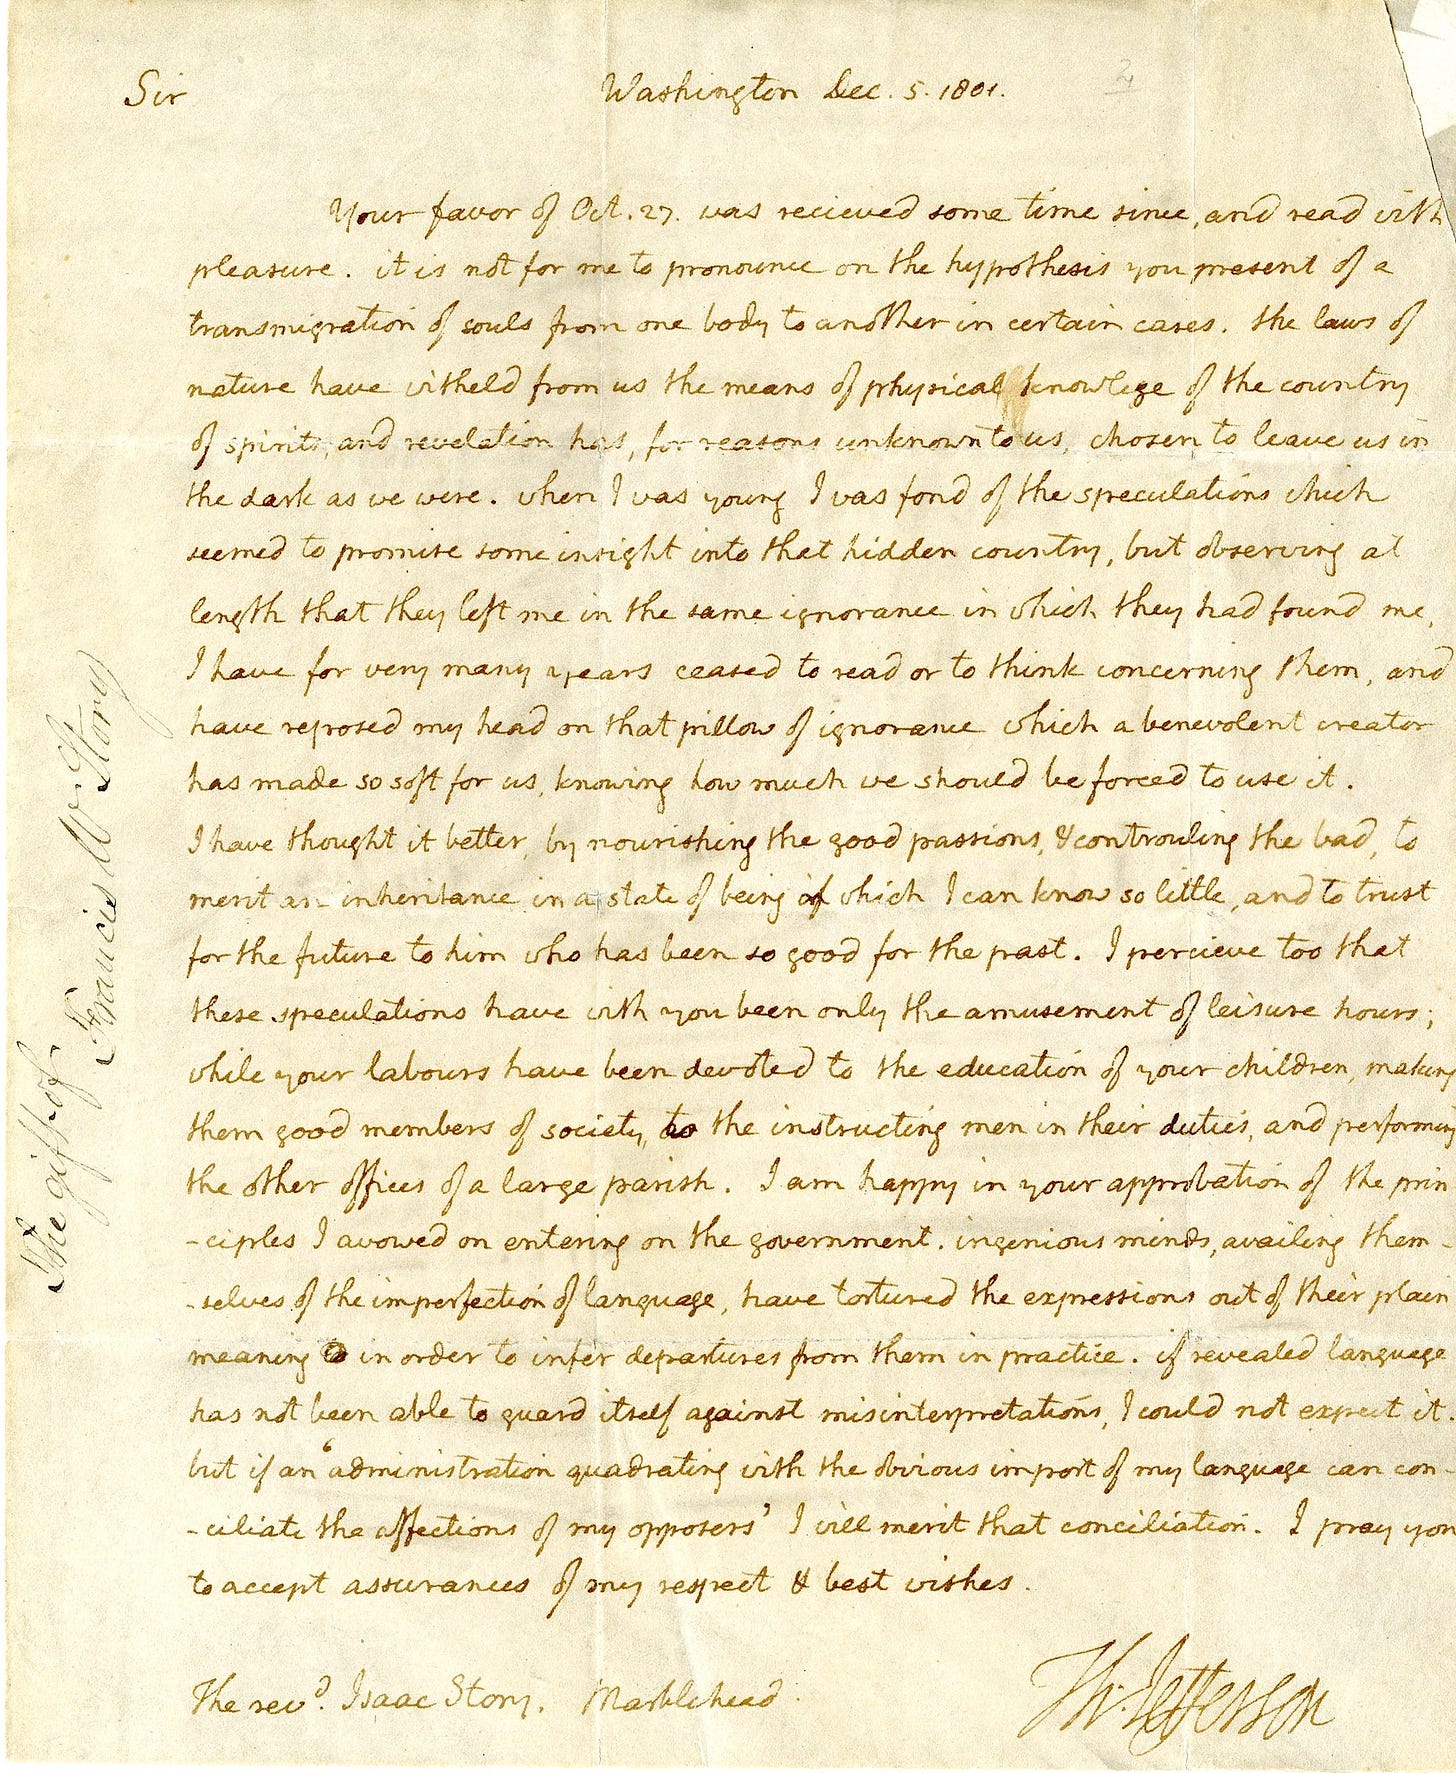 Sir
Washington Dec. 5. 1801.
Your favor of Oct. 27. was recieved some time since, and read with
pleasure. it is not for me to pronounce on the hypothesis you present of a
transmigration of souls from one body to another in certain cases. the laws of
nature have witheld from us the means of physical knowlege of the country
of spirits, and revelation has, for reasons unknown to us, chosen to leave us in
the dark as we were. when I was young I was fond of the speculations which
seemed to promise some insight into that hidden country, but observing at
length that they left me in the same ignorance in which they had found me,
I have for very many years ceased to read or to think concerning them, and
have reposed my head on that pillow of ignorance which a benevolent creator
has made so soft for us, knowing how much we should be forced to use it.
I have thought it better, by nourishing the good passions, & controuling the bad, to
merit an inheritance in a state of being of which I can know so little, and to trust
for the future to him who has been so good for the past. I percieve too that
these speculations have with you been only the amusement of leisure hours;
while your labours have been devoted to the education of your children, making
them good members of society, to the instructing men in their duties, and performing
the other offices of a large parish. I am happy in your approbation of the prin
-ciples I avowed on entering on the government. ingenious minds, availing them-
-selves of the imperfection of language, have tortured the expressions out of their plain
meaning in order to infer departures from them in practice. if revealed language
has not been able to guard itself against misinterpretations, I could not expect it.
but if an ‘administration quadrating with the obvious import of my language can con-
-ciliate the affections of my opposers’ I will merit that conciliation. I pray you
to accept assurances of my respect & best wishes.
Th: Jefferson
The revd. Isaac Story. Marblehead.
The gift of
Francis W. Story